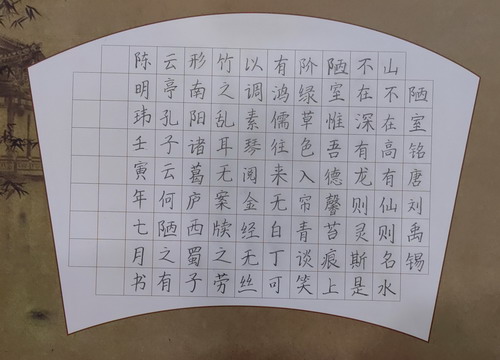 陋室铭唐刘禹锡
山不在高有仙则名水
不在深有龙则灵斯是
陋室惟吾德馨苔痕上
阶绿草色入帘青谈笑
有鸿儒往来无白丁可
以调素琴阅金经无丝
竹之乱耳无案牍之劳
形南阳诸葛庐西蜀子
云亭孔子云何陋之有
陈明玮壬寅年七月书